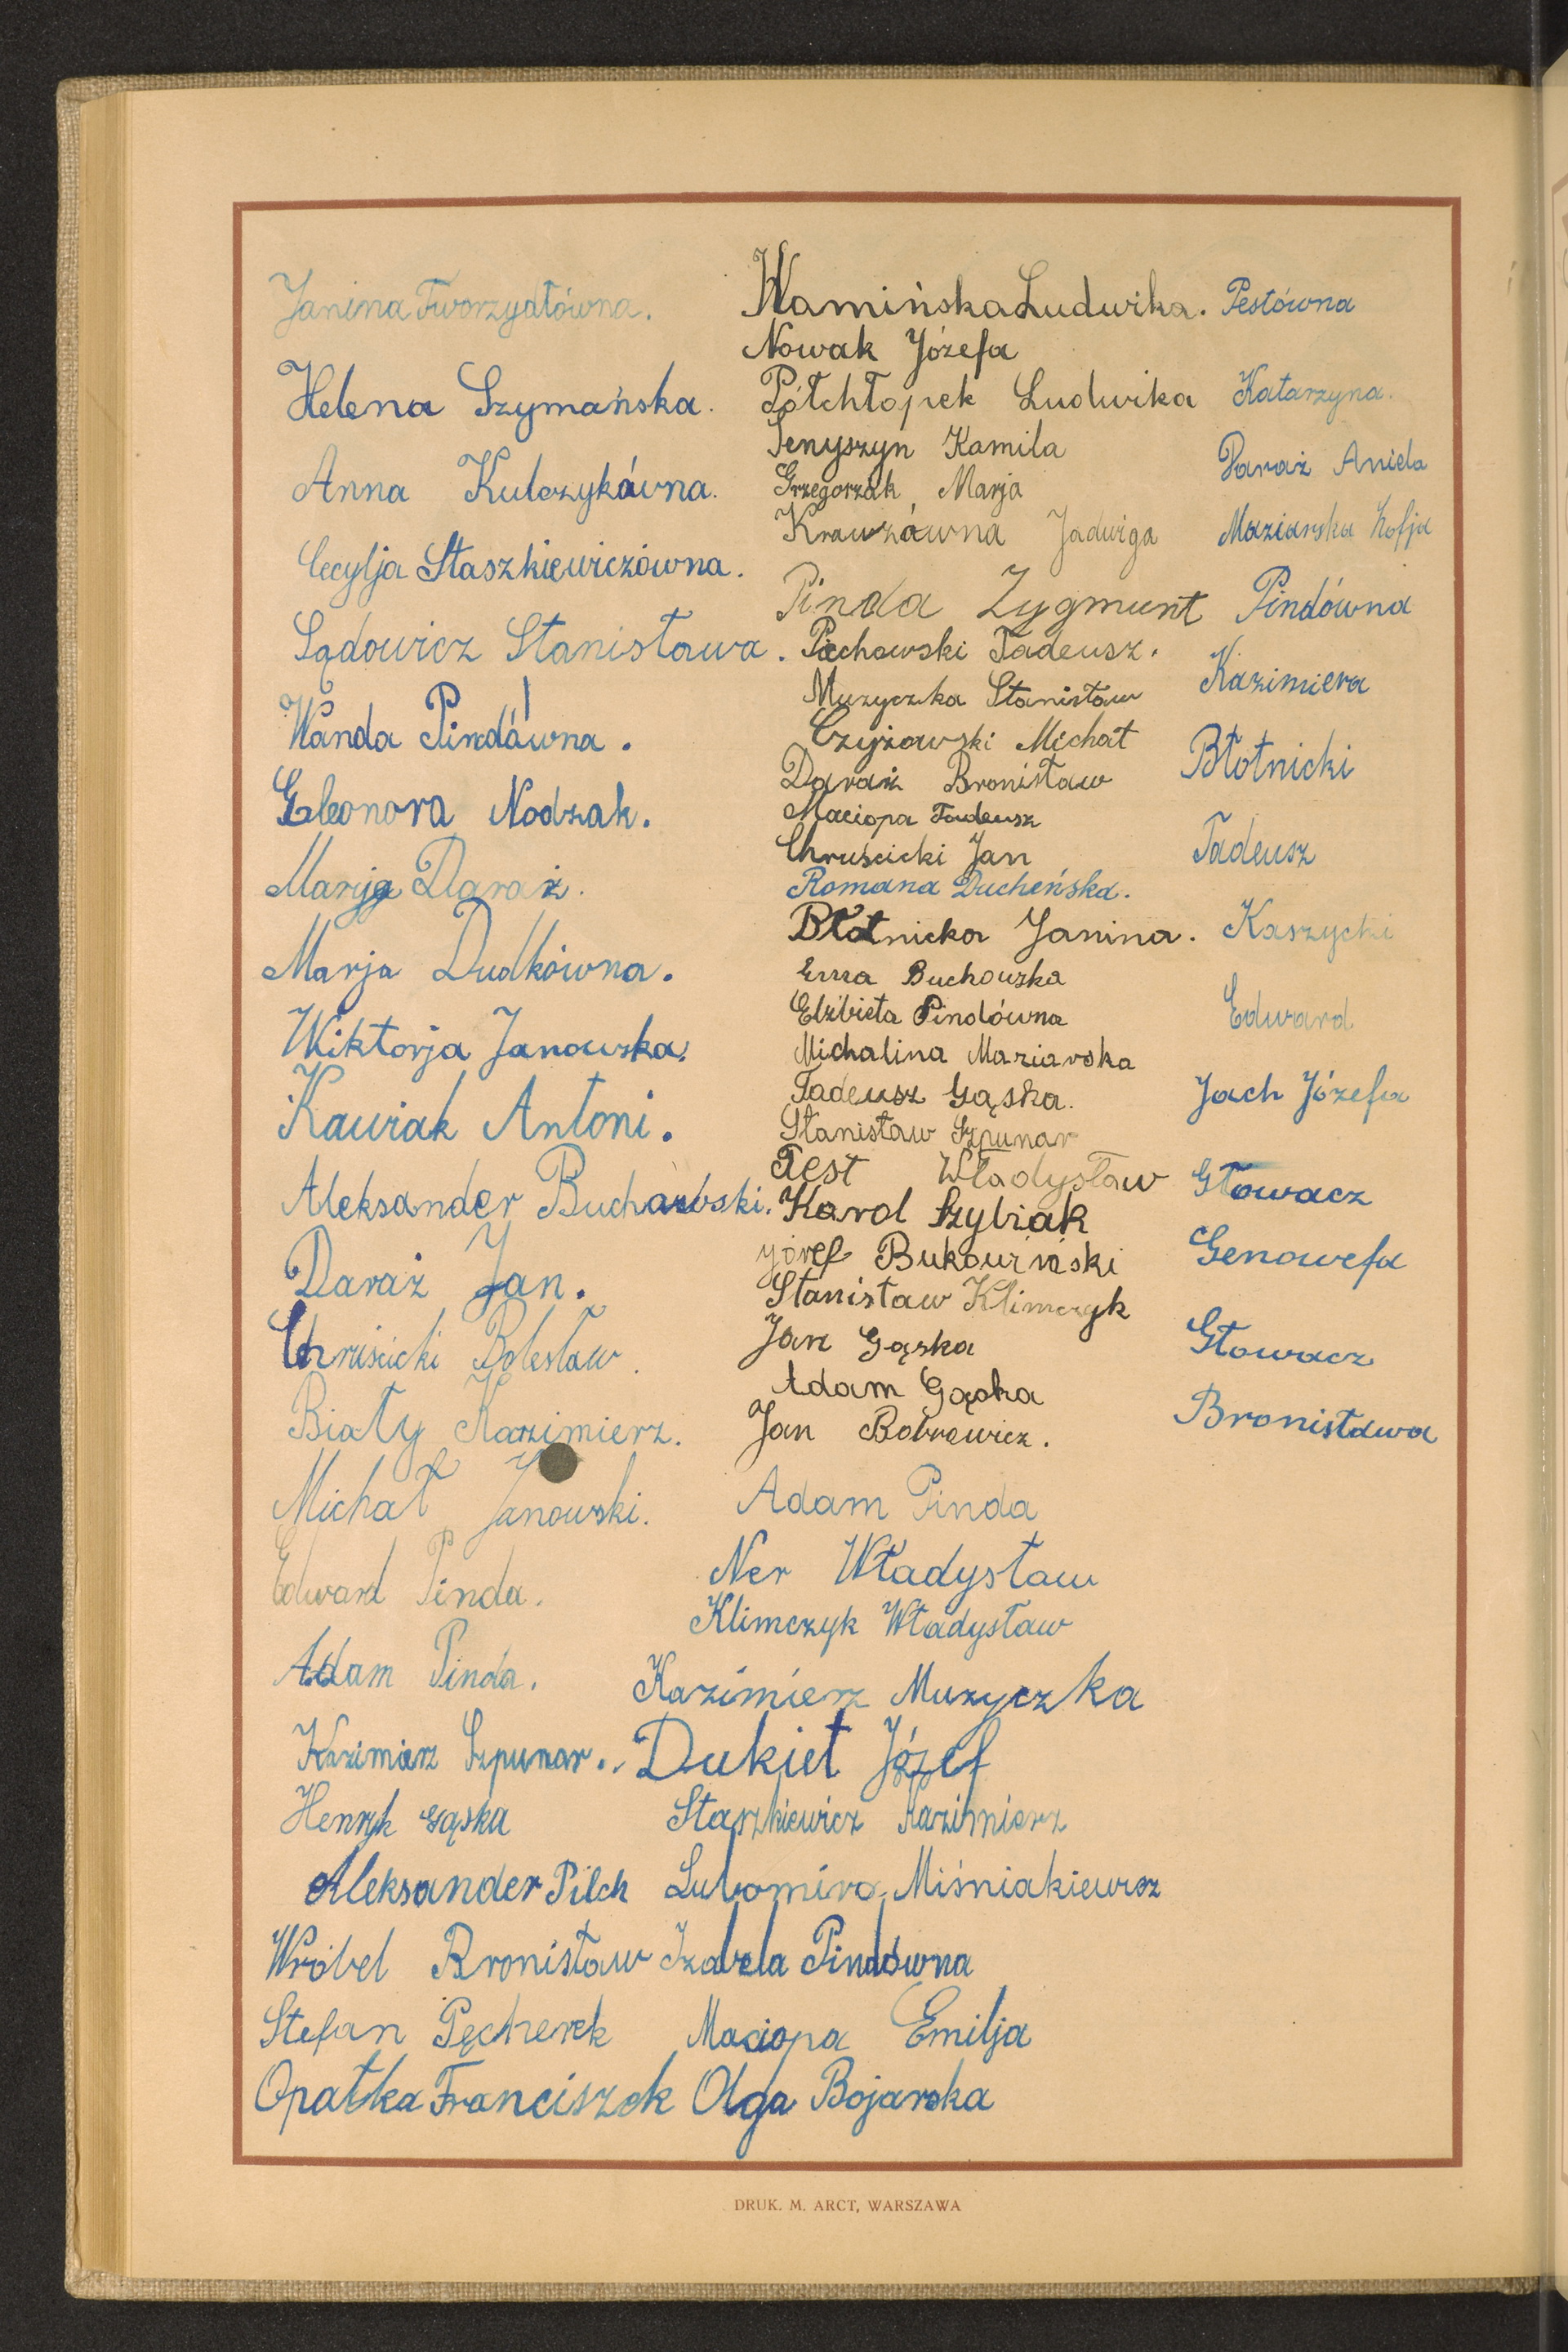 Janina Tworzydłówna.
Helena Szymańska.
Anna Kulczykówna.
Cecylja Staszkiewiczówna.
Sądowicz Stanisława.
Wanda Pindówna.
Eleonora Nodzak.
Marja Daraż.
Marja Dudkówna.
Wiktorja Janowska.
Kawiak Antoni.
Aleksander Buchowski.
Daraż Jan.
Chruścicki Bolesław.
Biały Kazimierz.
Michał Janowski.
Edward Pinda.
Adam Pinda.
Kazimierz Szpunar.
Henryk Gąska
Aleksander Pilch
Wróbel Bronisław
Stefan Pęcherek
Opałka Franciszek
Kamińska Ludwika.
Nowak Józefa
Półchłopek Ludwika
Senyszyn Kamila
Grzegorzak Marja
Krawzówna Jadwiga
Pinda Zygmunt
Piechowski Tadeusz.
Muzyczka Stanisław
Czyżowski Michał
Daraż Bronisław
Maciopa Tadeusz
Chruścicki Jan
Romana Ducheńska.
Błotnicka Janina.
Ema Buchowska
Elżbieta Pindówna
Michalina Maziarska
Tadeusz Gąska.
Stanisław Szpunar
Pest Władysław
Karol Szybiak
Józef Bukowiński
Stanisław Klimczyk
Jan Gąska
Adam Gąska
Jan Bobrowicz.
Adam Pinda
Ner Władysław
Klimczyk Władysław
Kazimierz Muzyczka
Dukiet Józef
Staszkiewicz Kazimierz
Lubomira Miśniakiewicz
Izabela Pindówna
Maciopa Emilja
Olga Bojarska
Pestówna
Katarzyna.
Daraż Aniela
Maziarska Zofja
Pindówna
Kazimiera
Błotnicki
Tadeusz
Kaszycki
Edward
Jach Józefa
Głowacz
Genowefa
Głowacz
Bronisława
DRUK. M. ARCT, WARSZAWA